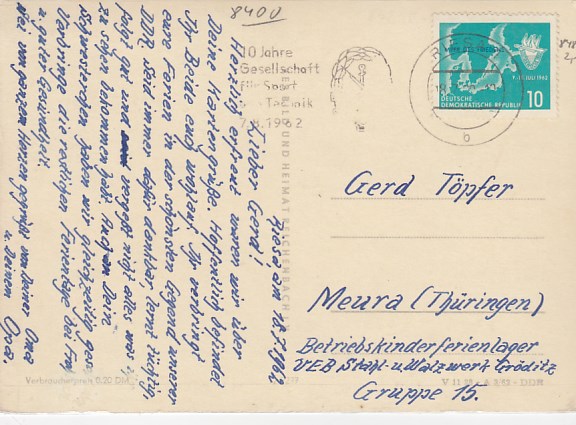 8400
10 Jahre
Gesellschaft
für Sport
und Technik
7.8.1962
RIESA
b
WOCHE DES FRIEDENS
9.-15. JULI 1962
DEUTSCHE
DEMOKRATISCHE REPUBLIK
10
BILD UND HEIMAT REICHENBACH
am 18.7.1962
Lieber Gerd!
Herzlich erfreut waren wir über
Deine Kartengrüße. Hoffentlich befindet
Ihr Beide euch wohlauf. Ihr verbringt
eure Ferien in der schönsten Gegend unserer
DDR. Seid immer dafür dankbar lernt tüchtig,
folgt gut und vergeßt nicht alles was ihr
zu sehen bekommen habt.
Schwesterchen haben wir gleichzeitig geschr.
Verbringe die restlichen Ferientage bei Froh
u. guter Gesundheit.
Sei von ganzem Herzen gegrüßt von Deiner Oma
u. Deinem Opa.
Gerd Töpfer
Meura (Thüringen)
Betriebskinderferienlager
VEB Stahl- u. Walzwerk Gröditz
Gruppe 15.
Verbraucherpreis 0,20 DM
DDR